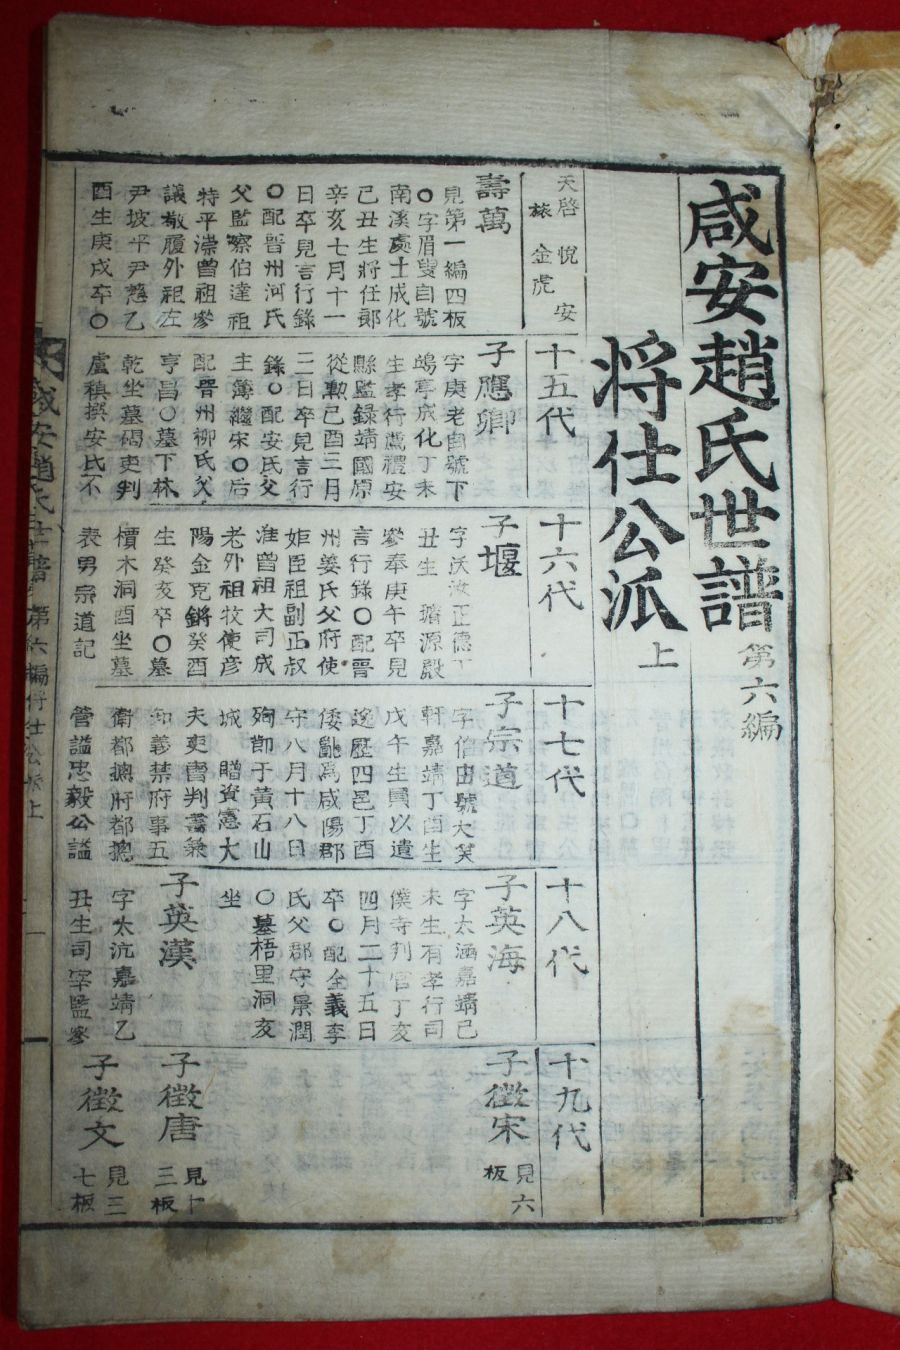 咸安趙氏世譜 第六編
將仕公派 上
天啓 悅 安
旅 金虎
壽萬
見第一編四板
○字眉叟自號
南溪處士成化
己丑生將仕郎
辛亥七月十一
日卒見言行錄
○配晉州河氏
父監察伯達祖
特平崇曾祖參
議敬履外祖左
尹坡平尹慈乙
酉生庚戌卒○
十五代
子應卿
字庚老自號下
鴟亭成化丁未
生孝行薦禮安
縣監錄靖國原
從勳己酉三月
二日卒見言行
錄○配安氏父
主簿繼宋○后
配晉州柳氏父
亨昌○墓下林
乾坐墓碣吏判
盧稹撰安氏不
十六代
子堰
字沃汝正德丁
丑生 璿源殿
參奉庚午卒見
言行錄○配晉
州姜氏父府使
姖臣祖副正叔
淮曾祖大司成
老外祖牧使彦
陽金克鏘癸酉
生癸亥卒○墓
檟木洞酉坐墓
表男宗道記
十七代
子宗道
字伯由號大笑
軒嘉靖丁酉生
戊午生員以遺
逸歷四邑丁酉
倭亂爲咸陽郡
守八月十八日
殉節于黃石山
城 贈資憲大
夫吏曹判書兼
知義禁府事五
衛都摠府都摠
管謚忠毅公謚
十八代
子英海
字太涵嘉靖己
未生有孝行司
僕寺判官丁亥
四月二十五日
卒○配全義李
氏父郡守景潤
○墓梧里洞亥
坐
子英漢
字太沆嘉靖乙
丑生司宰監參
十九代
子徵宋
見六
板
子徵唐
三板
子徵文
見三
七板
咸安趙氏世譜 第六編將仕公派上